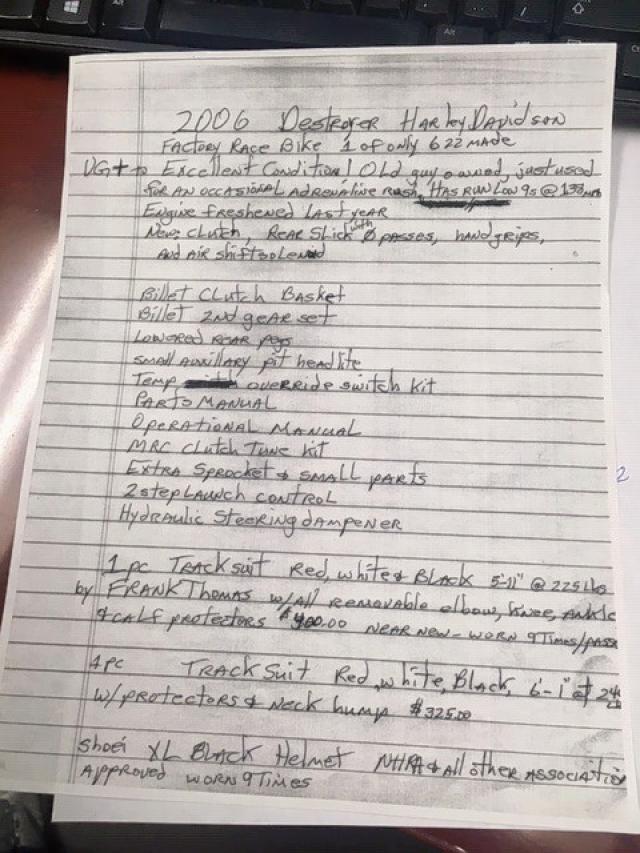 2006 Destroyer Harley Davidson
Factory Race Bike 1 of only 622 made
VG+ to Excellent Condition! Old guy owned, just used
for an occasional adrenaline rush, Has run low 9s @ 138
Engine freshened last year
New clutch, Rear slick with 0 passes, handgrips,
and air shift solenoid
Billet Clutch Basket
Billet 2nd gear set
Lowered rear pegs
small auxillary pit headlite
Temp override switch kit
Parts Manual
Operational Manual
MRC Clutch Tune Kit
Extra Sprocket & small parts
2 step Launch control
Hydraulic Steering dampener
1 pc Track suit Red, white & Black 5-11" @ 225 lbs
by Frank Thomas w/all removable elbow, knee, ankle
& calf protectors near new - worn 9 times/pass
Track Suit Red, white, Black, 6'-1" at
w/protectors & neck hump $325.00
Shoei XL Black Helmet NHRA & all other associatio
approved worn 9 times
Alt